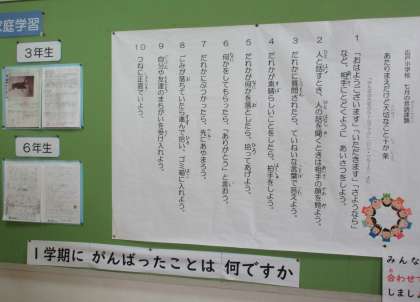 家庭学習
3年生
6年生
あたりまえだけど大切なこと十か条
1 「おはようございます」「いただきます」「さようなら」
など、相手にとどくように あいさつをしよう。
2 人と話すとき、人の話を聞くときは相手の顔を見よう。
3 だれかに質問されたら、ていねいな言葉で答えよう。
4 だれかが素晴らしいことをしたら、拍手をしよう。
5 だれかが何かを落としたら、拾ってあげよう。
6 何かをしてもらったら、「ありがとう」と言おう。
7 だれかにぶつかったら、先にあやまろう。
8 ごみが落ちていたら進んで拾い、ゴミ箱に入れよう。
9 自分や友達のまちがいを受け入れよう。
10 つねに正直でいよう。
1学期に がんばったことは 何ですか
みんな
合わせて
しましょ